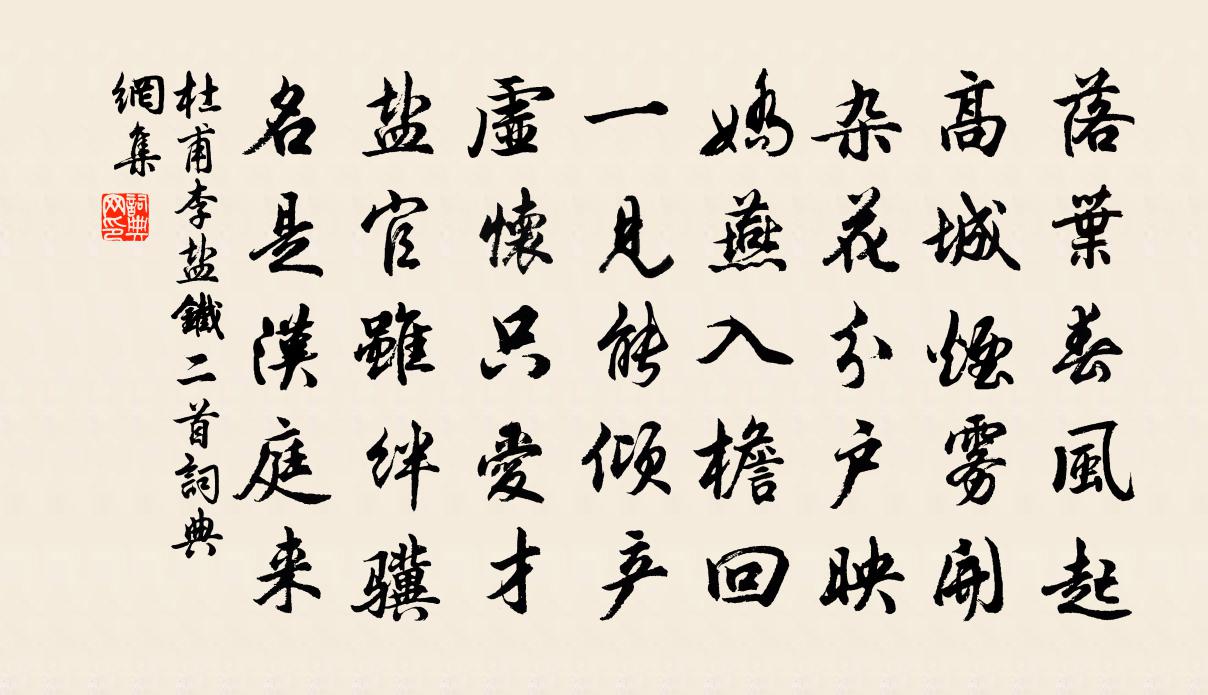 落葉春風起
高城煙雾開
杂花分户映
嬌燕入檐回
一見能傾产
虛懷只愛才
盐官雖絆驥
名是漢庭来
杜甫李盐鐵二首詞典
網集
詞典網印